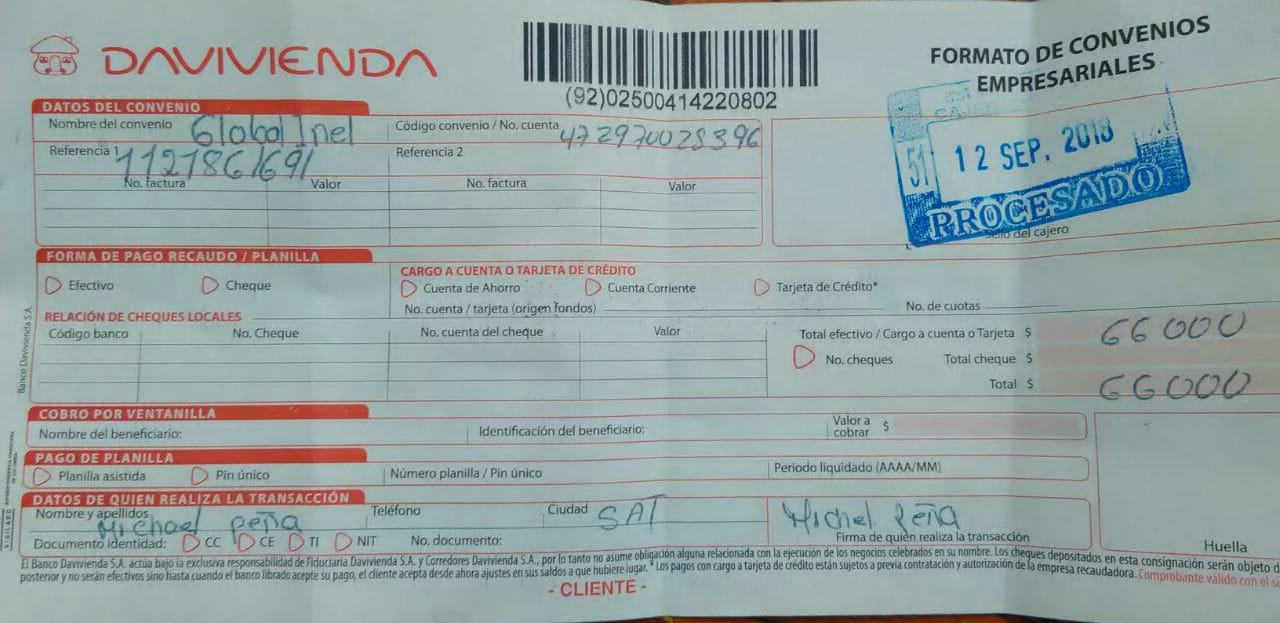 DAVIVIENDA
(92)02500414220802
FORMATO DE CONVENIOS
EMPRESARIALES
DATOS DEL CONVENIO
Nombre del convenio Global Inel
Código convenio / No. cuenta 472970028396
Referencia 1 112186/691
Referencia 2
No. factura Valor No. factura Valor
51
12 SEP. 2018
PROCESADO
del cajero
FORMA DE PAGO RECAUDO / PLANILLA
Efectivo Cheque
CARGO A CUENTA O TARJETA DE CRÉDITO
Cuenta de Ahorro Cuenta Corriente Tarjeta de Crédito*
No. cuenta / tarjeta (origen fondos) No. de cuotas
RELACIÓN DE CHEQUES LOCALES
Código banco No. Cheque No. cuenta del cheque Valor
Total efectivo / Cargo a cuenta o Tarjeta $ 66000
No. cheques Total cheque $
Total $ 66000
Banco Davivienda S.A.
COBRO POR VENTANILLA
Nombre del beneficiario: Identificación del beneficiario: Valor a cobrar $
PAGO DE PLANILLA
Planilla asistida Pin único Número planilla / Pin único Periodo liquidado (AAAA/MM)
DATOS DE QUIEN REALIZA LA TRANSACCIÓN
Nombre y apellidos Michael Peña Teléfono Ciudad SAT
Michel Peña
Firma de quién realiza la transacción
Documento identidad: CC CE TI NIT No. documento:
Huella
VIGILADO
El Banco Davivienda S.A. actúa bajo la exclusiva responsabilidad de Fiduciaria Davivienda S.A. y Corredores Davivienda S.A., por lo tanto no asume obligación alguna relacionada con la ejecución de los negocios celebrados en su nombre. Los cheques depositados en esta consignación serán objeto d
posterior y no serán efectivos sino hasta cuando el banco librado acepte su pago, el cliente acepta desde ahora ajustes en sus saldos a que hubiere lugar. * Los pagos con cargo a tarjeta de crédito están sujetos a previa contratación y autorización de la empresa recaudadora. Comprobante válido con el s
- CLIENTE -